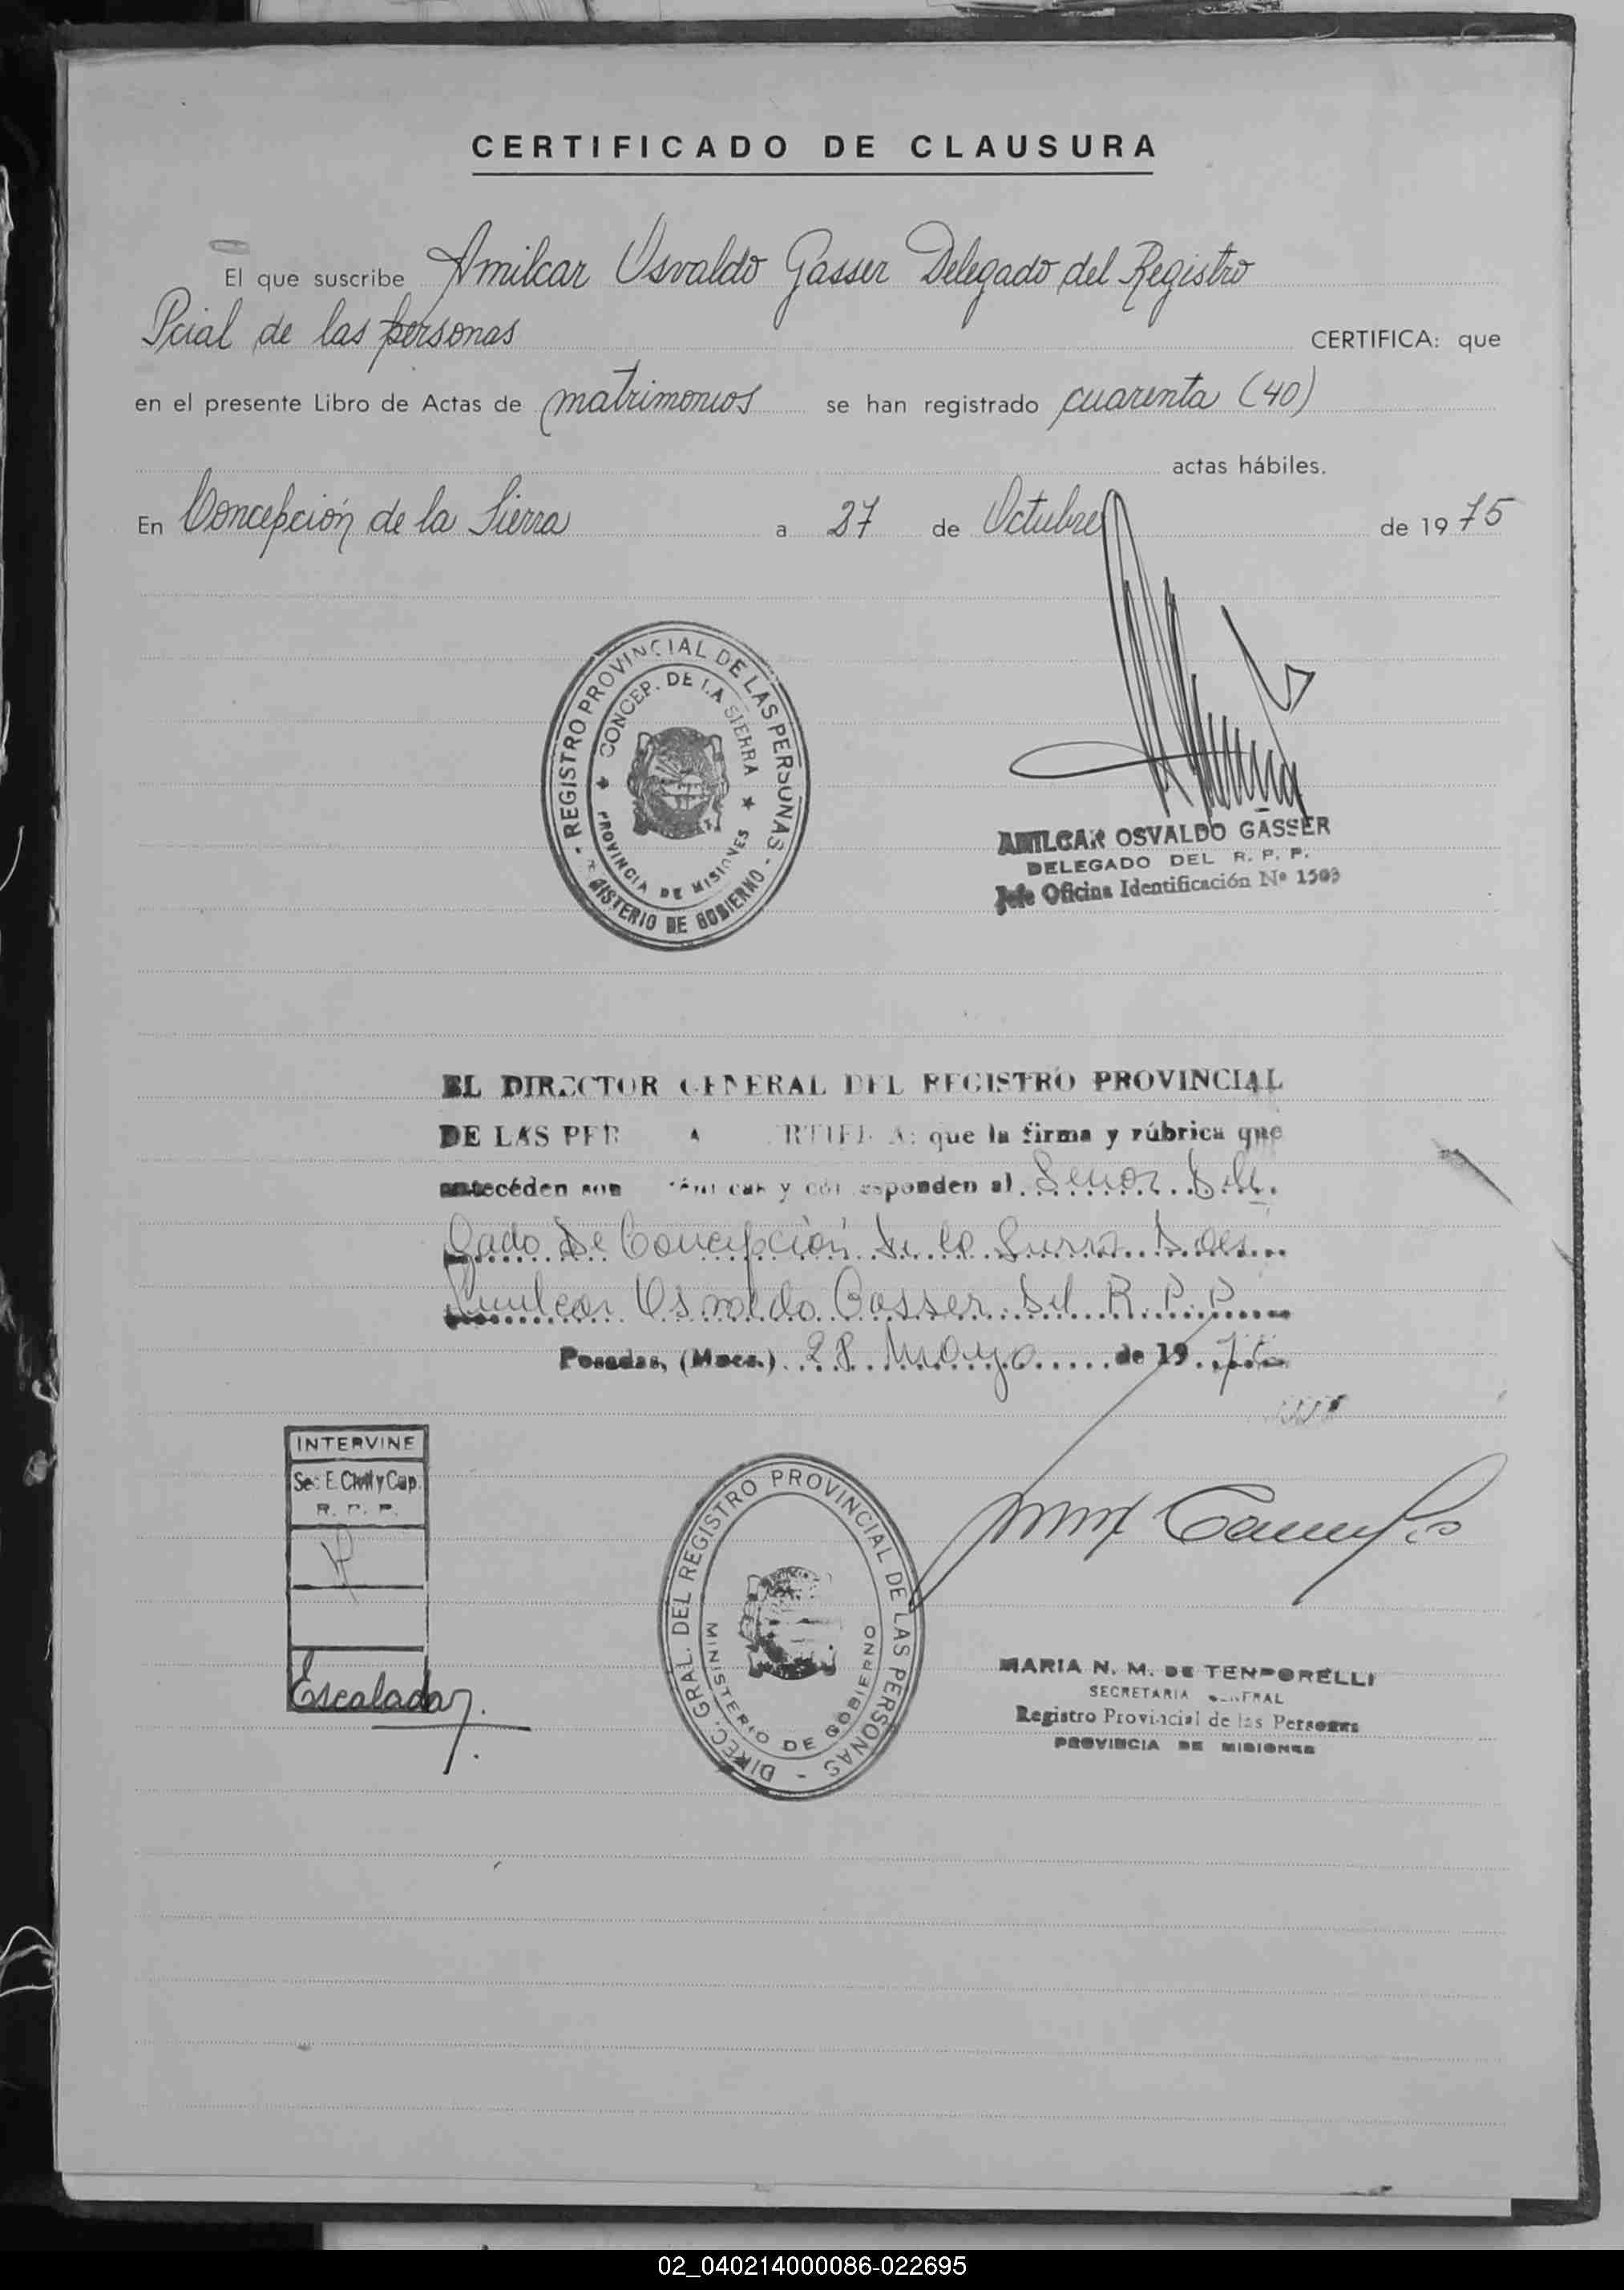 CERTIFICADO DE CLAUSURA
El que suscribe Amilcar Osvaldo Gasser Delegado del Registro
Pcial de las personas CERTIFICA: que
en el presente Libro de Actas de matrimonios se han registrado cuarenta (40)
actas hábiles.
En Concepción de la Sierra a 27 de Octubre de 1975
REGISTRO PROVINCIAL DE LAS PERSONAS
CONCEP. DE LA SIERRA
PROVINCIA DE MISIONES
MINISTERIO DE GOBIERNO
AMILCAR OSVALDO GASSER
DELEGADO DEL R. P. P.
Jefe Oficina Identificación Nº 1503
EL DIRECTOR GENERAL DEL REGISTRO PROVINCIAL
DE LAS PER A RTIFI A: que la firma y rúbrica que
antecéden son y corresponden al Señor Dele
gado de Concepción de la Sierra Don
Amilcar Osvaldo Gasser del R. P. P.
Posadas, (Mnes.) 28 Mayo de 19 76
INTERVINE
Sec. E. Civil y Cap.
R. P. P.
Escalada
DIREC. GRAL. DEL REGISTRO PROVINCIAL DE LAS PERSONAS
MINISTERIO DE GOBIERNO
MARIA N. M. DE TEMPORELLI
SECRETARIA GENERAL
Registro Provincial de las Personas
PROVINCIA DE MISIONES
02_040214000086-022695